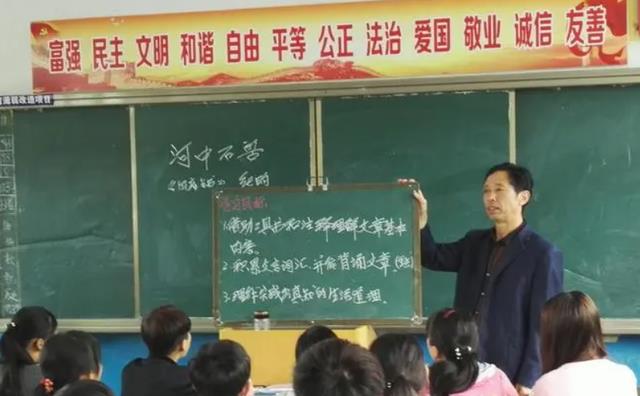 富强 民主 文明 和谐 自由 平等 公正 法治 爱国 敬业 诚信 友善
改造项目
河中石兽
纪昀
学习目标:
1.借助工具书和注释理解文章基本
内容。
2.积累文言词汇,并能背诵文章
3.理解实践出真知的生活道理.